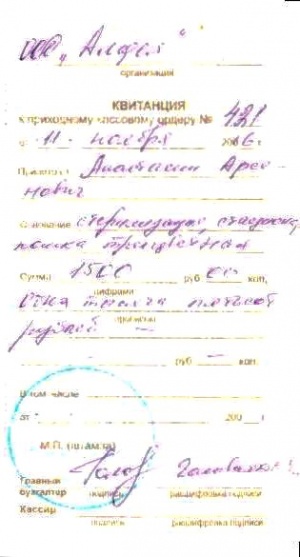 ООО „Алфея"
организация
КВИТАНЦИЯ
к приходному кассовому ордеру № 421
от „11" ноября 2006 г.
Принято от Анастасии
Основание стерилизация,
кошка трехцветная
Сумма 1500 руб. 00 коп.
цифрами
Одна тысяча пятьсот
рублей —
прописью
руб. — коп.
В том числе
от " 200 г.
М.П. (штампа)
Главный
бухгалтер подпись расшифровка подписи
Кассир
подпись расшифровка подписи